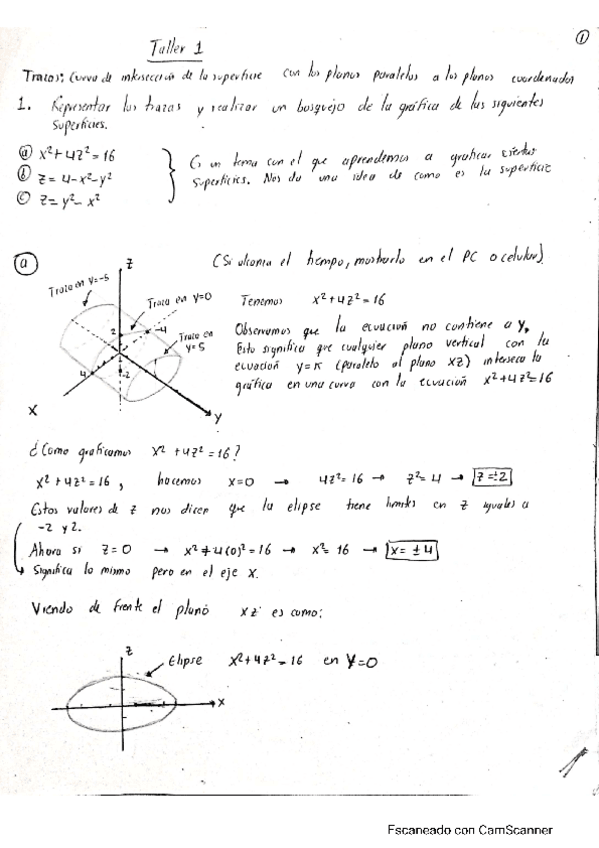 ①
Taller 1
Trazos: Curva de intersección de la superficie con los planos paralelos a los planos coordenados
1. Representar las trazas y realizar un bosquejo de la gráfica de las siguientes
superficies.
ⓐ x²+4z²=16
ⓑ z=4-x²-y²
ⓒ z=y²-x²
Es un tema con el que aprendemos a graficar ciertas
superficies. Nos da una idea de como es la superficie
ⓐ
(Si alcanza el tiempo, mostrarlo en el PC o celular)
z
Trazo en y=-5
Trazo en y=0
Trazo en
y=5
2
-4
4
-2
x
y
Tenemos x²+4z²=16
Observamos que la ecuación no contiene a y,
Esto significa que cualquier plano vertical con la
ecuación y=k (paralelo al plano xz) interseca la
gráfica en una curva con la ecuación x²+4z²=16
¿Como graficamos x²+4z²=16?
x²+4z²=16, hacemos x=0 → 4z²=16 → z²=4 → z=±2
Estos valores de z nos dicen que la elipse tiene limites en z iguales a
-2 y 2.
Ahora si z=0 → x²+4(0)²=16 → x²=16 → x=±4
→ Significa lo mismo pero en el eje x.
Viendo de frente el plano xz es como:
z
Elipse x²+4z²=16 en y=0
x
Escaneado con CamScanner